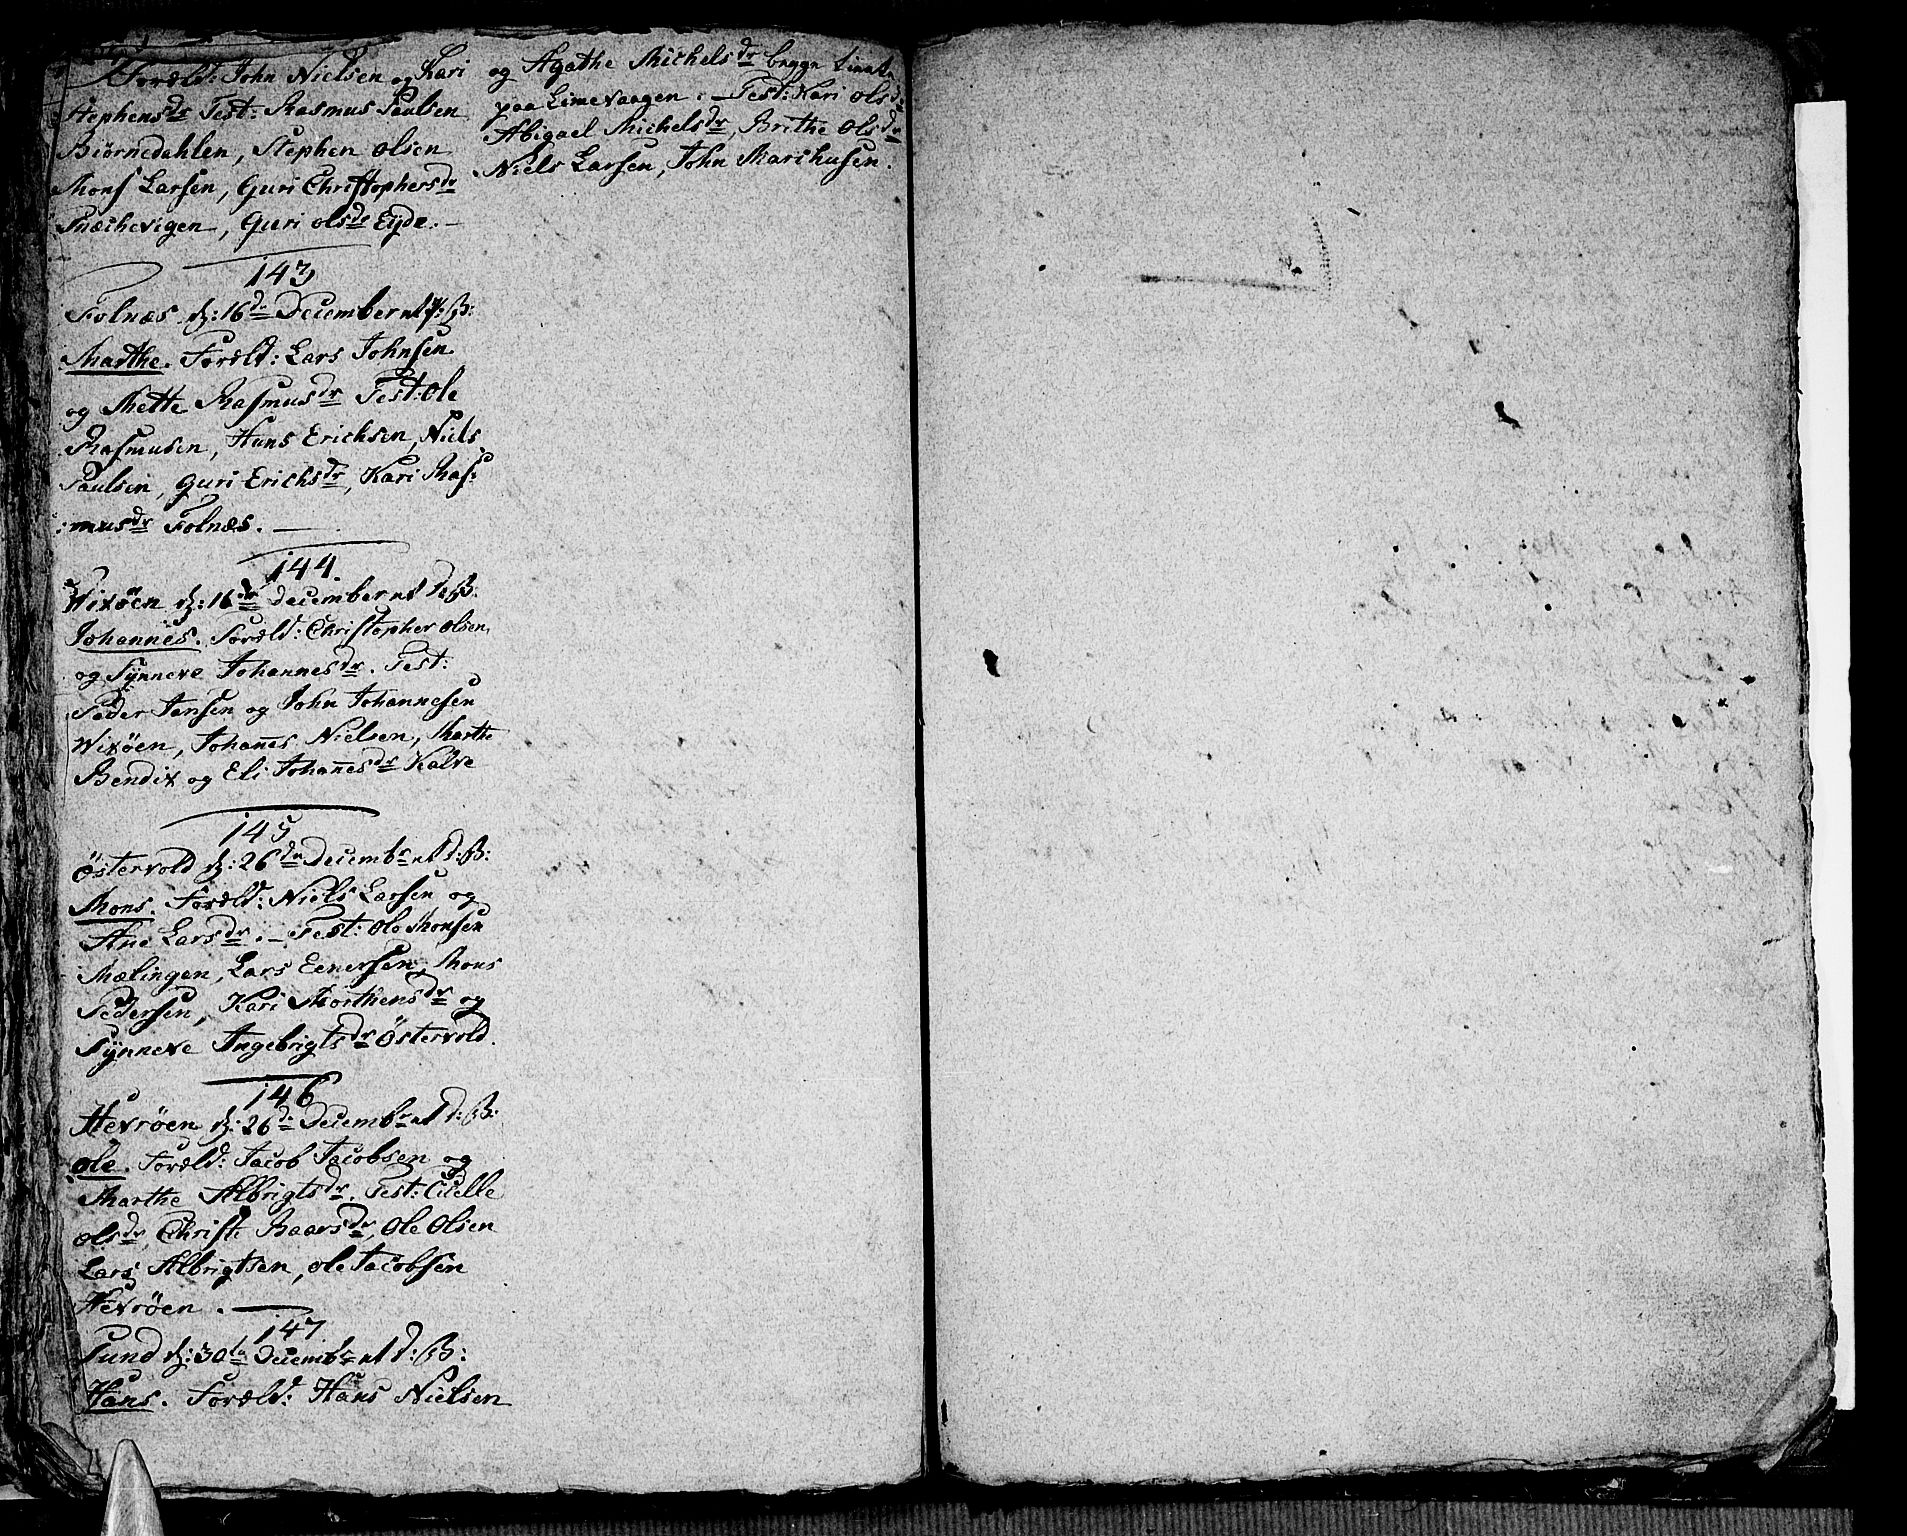 Foræld: John Nielsen og Kari
Stephensdr Test: Rasmus Paulsen
Biørnedahlen, Stephen Olsen
Mons Larsen, Guri Christophersdr
Snæchevigen, Guri Olsdr Eyde.
143
Folnæs d: 16de December
Marthe. Foræld: Lars Johnsen
og Mette Rasmusdr Test: Ole
Rasmusen, Hans Erichsen, Niels
Paulsen, Guri Erichsdr, Kari Ras-
musdr Folnæs.
144.
Wixøen d: 16de December
Johannes. Foræld: Christopher Olsen
og Synneve Johannesdr. Test:
Peder Jansen og John Johannesen
Wixøen, Johannes Nielsen, Marthe
Bendix og Eli Johannesdr Kalve
145
Østervold d: 26de Decembr
Mons. Foræld: Niels Larsen og
Ane Larsdr. Test: Ole Monsen
Mælingen, Lars Eenersen, Mons
Pedersen, Kari Morthensdr og
Synneve Ingebrigtsdr Østervold.
146
Hevrøen d: 26de Decembr
Ole. Foræld: Jacob Jacobsen og
Marthe Albrigtsdr. Test: Citelle
Olsdr, Christi Baarsdr, Ole Olsen
Lars Albrigtsen, Ole Jacobsen
Hevrøen.
147
Sund d: 30te Decembr
Hans. Foræld: Hans Nielsen
og Agathe Michelsdr
paa Limevaagen. Test: Kari Olsdr
Abigael Michelsdr, Brithe Olsdr
Niels Larsen, John Marchusen.